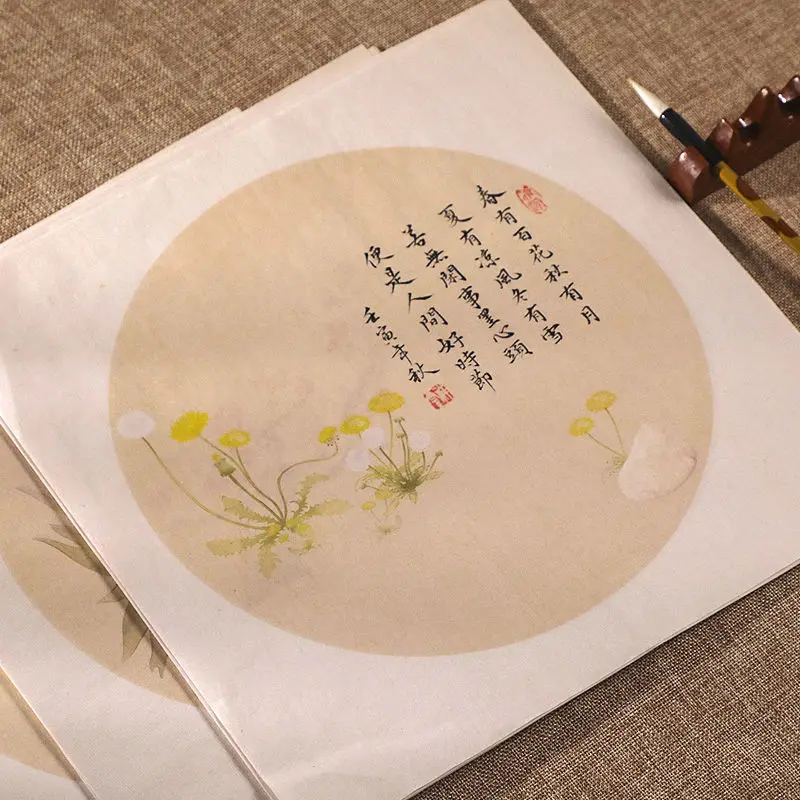 春有百花秋有月
夏有凉風冬有雪
若無閑事罣心頭
便是人間好時節
壬寅年秋